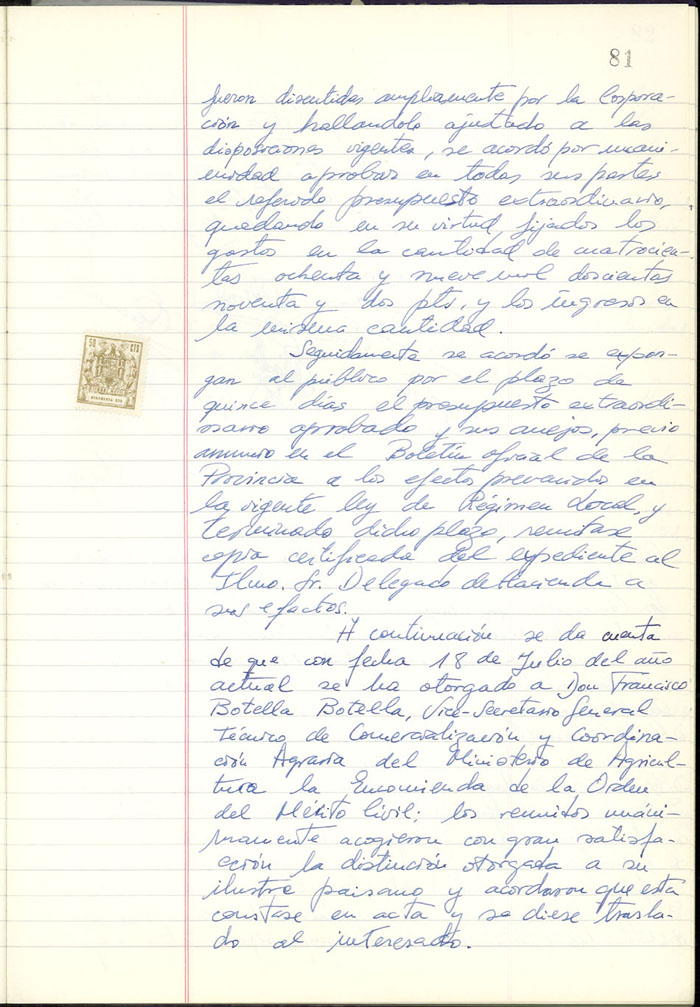 81
fueron discutidas ampliamente por la Corpora-
ción y hallandolo ajustado a las
disposiciones vigentes, se acordó por unani-
midad aprobar en todas sus partes
el referido presupuesto extraordinario,
quedando en su virtud, fijados los
gastos en la cantidad de cuatrocien-
tas ochenta y nueve mil doscientas
noventa y dos pts. y los ingresos en
la misma cantidad.
Seguidamente se acordó se expon-
gan al público por el plazo de
quince días el presupuesto extraordi-
nario aprobado y sus anejos, previo
anuncio en el Boletín oficial de la
Provincia a los efectos prevenidos en
la vigente ley de Régimen Local, y
terminado dicho plazo, remitase
copia certificada del expediente al
Ilmo. Sr. Delegado de Hacienda a
sus efectos.
A continuación se da cuenta
de que con fecha 18 de Julio del año
actual se ha otorgado a Don Francisco
Botella Botella, Vice-Secretario General
Técnico de Comercialización y Coordina-
ción Agraria del Ministerio de Agricul-
tura la Encomienda de la Orden
del Mérito Civil; los reunidos unáni-
mamente acogieron con gran satisfa-
cción la distinción otorgada a su
ilustre paisano y acordaron que esta
constase en acta y se diese trasla-
do al interesado.
50 CTS